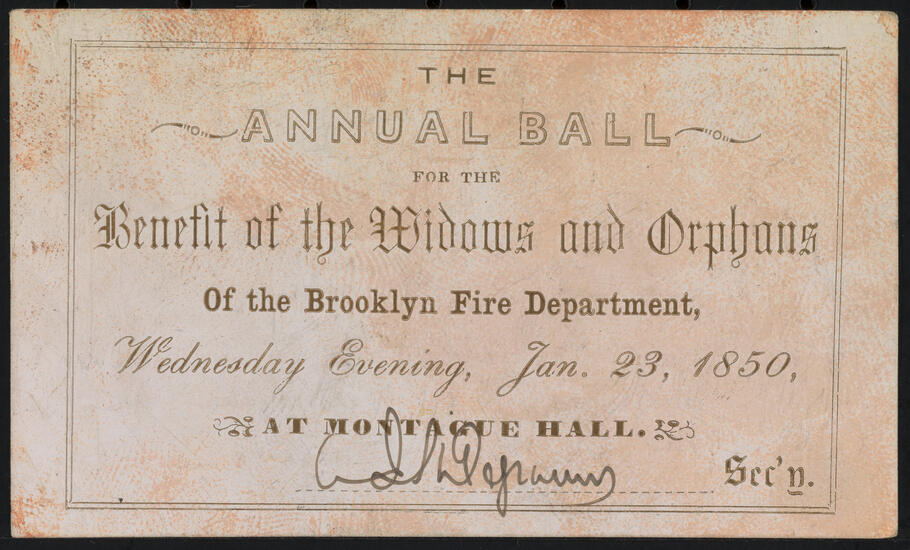 THE
ANNUAL BALL
FOR THE
Benefit of the Widows and Orphans
Of the Brooklyn Fire Department,
Wednesday Evening, Jan. 23, 1850,
AT MONTAGUE HALL.
Sec'y.